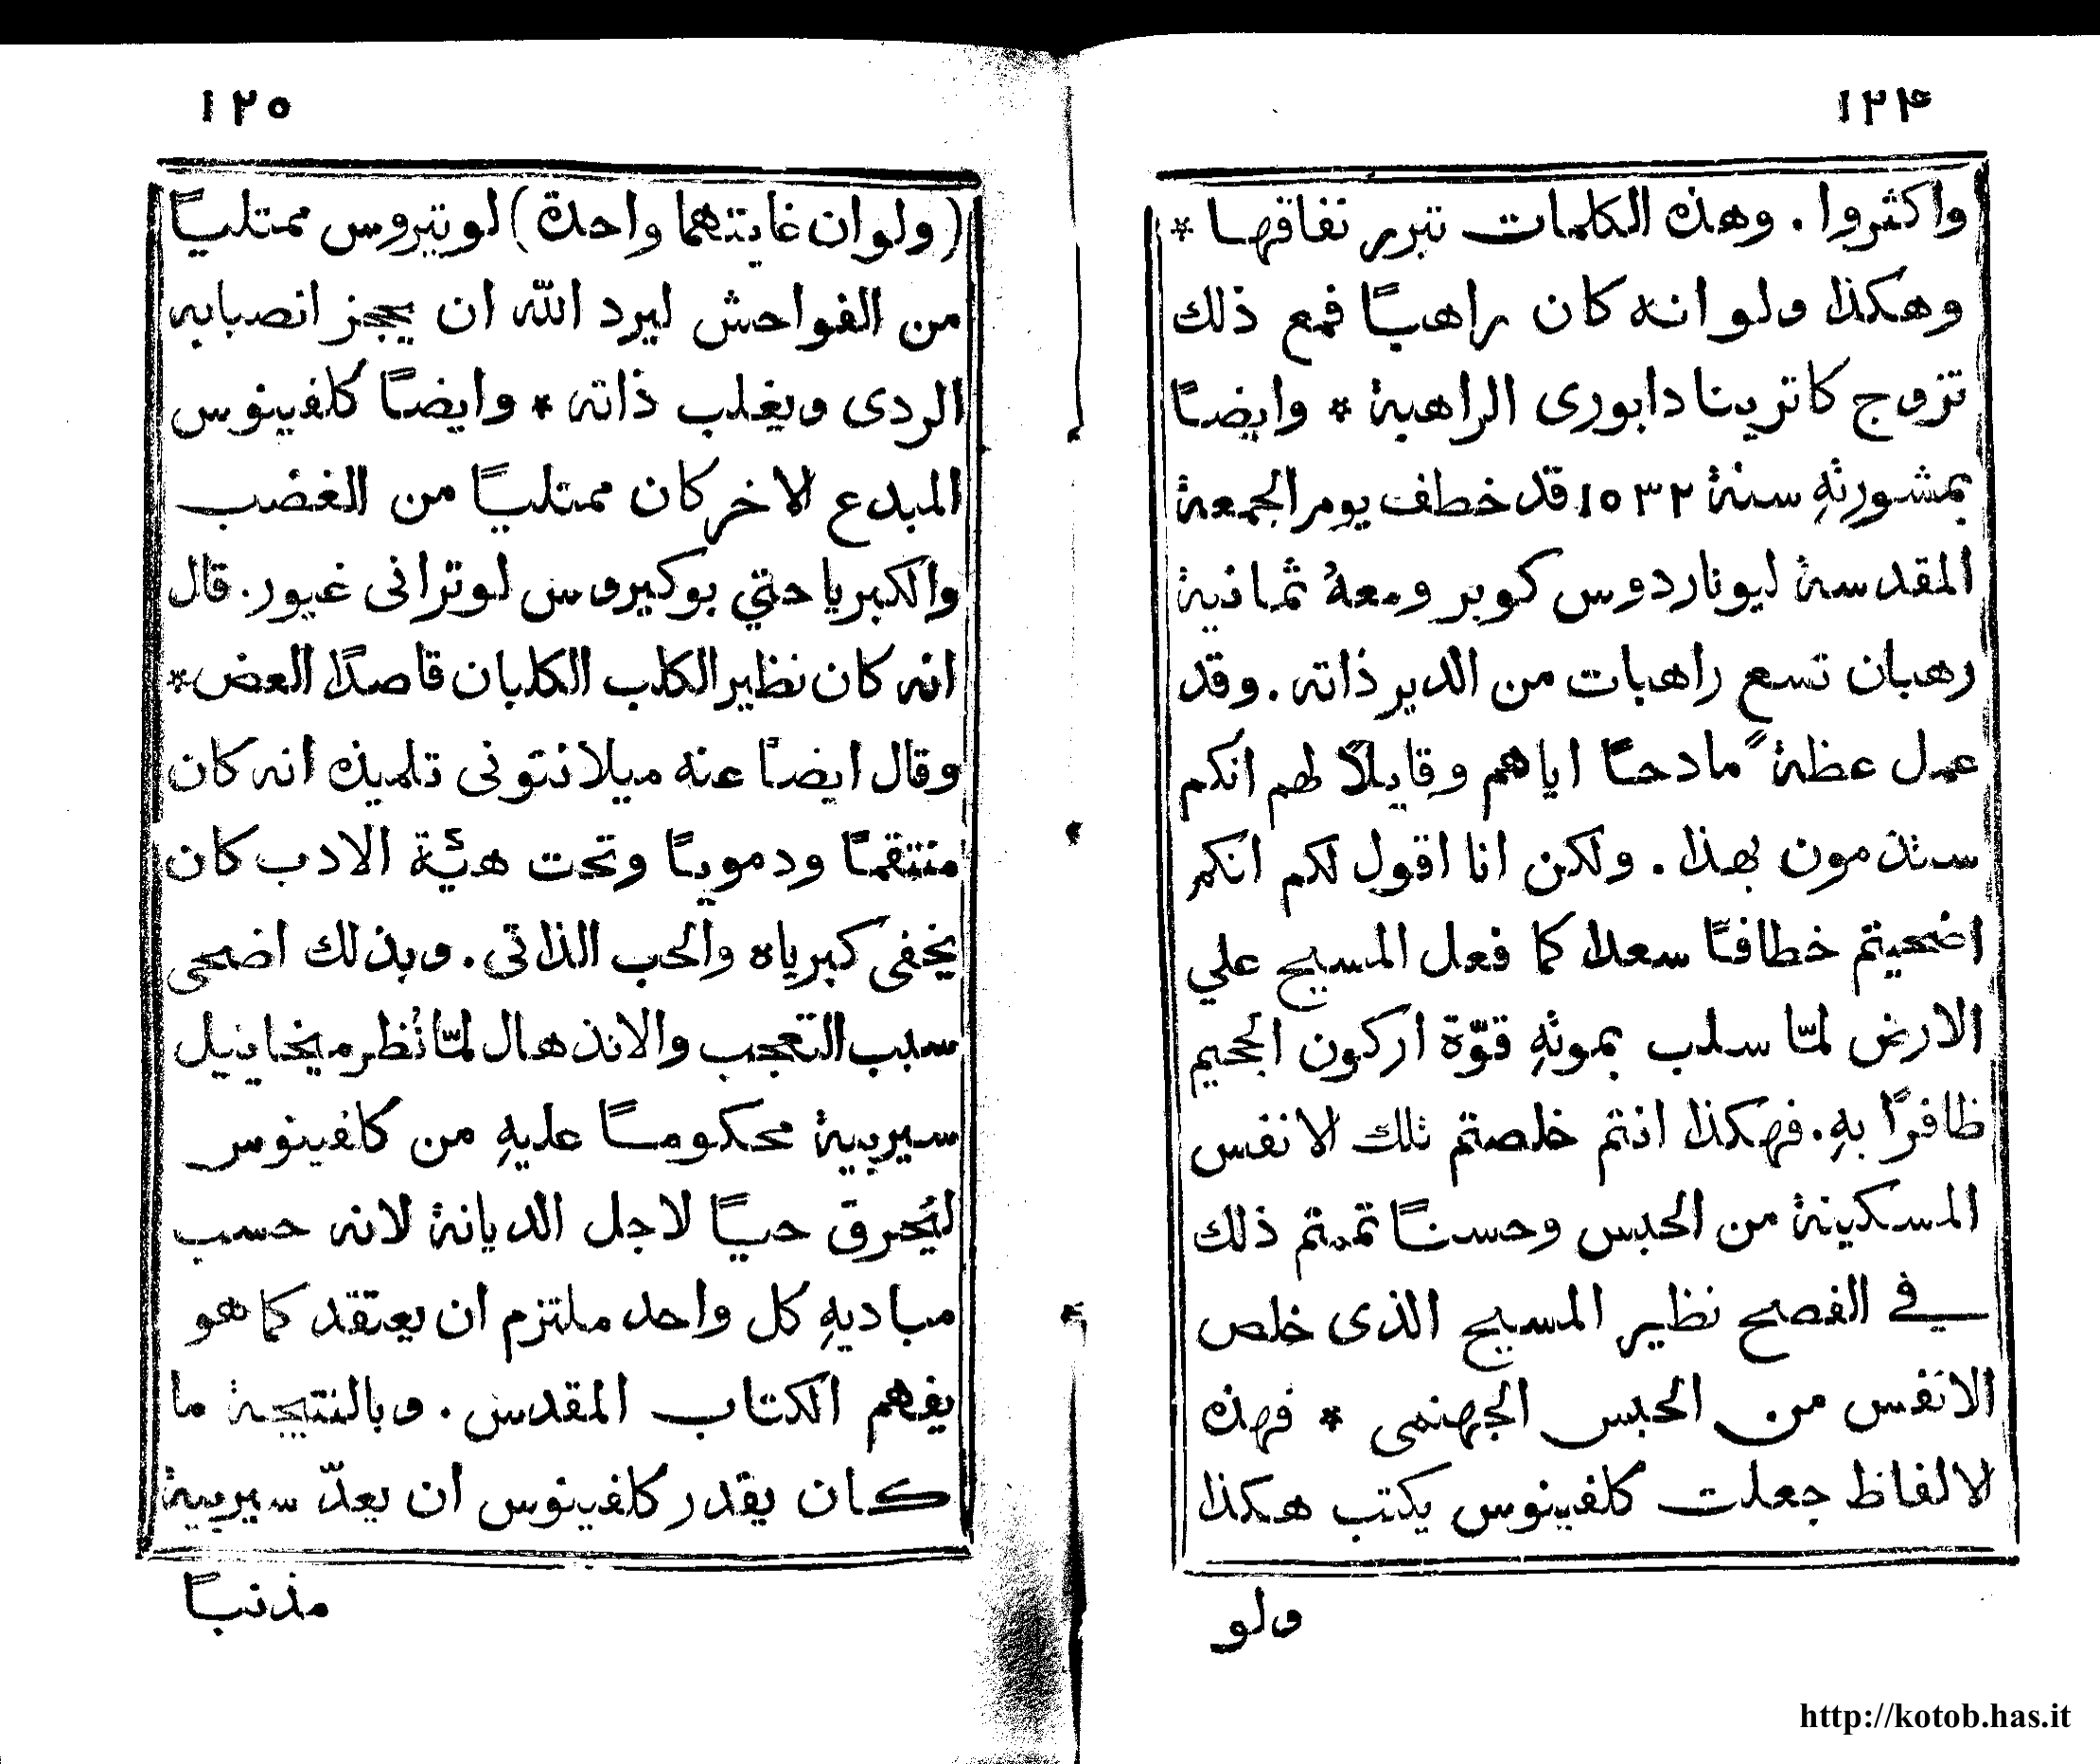 ١٢٤
واكثروا . وهذه الكلمات تبرر نفاقها *
وهكذا ولو انه كان راهبًا فمع ذلك
تزوج كاترينا دابوري الراهبة * وايضًا
بمشورتهِ سنة ١٥٣٢ قد خطف يوم الجمعة
المقدسة ليوناردوس كوبر ومعهُ ثمانية
رهبان تسع راهبات من الدير ذاته . وقد
عمل عظةً مادحًا اياهم وقايلًا لهم انكم
ستذمون بهذا . ولكن انا اقول لكم انكم
اضحيتم خطافًا سعدا كما فعل المسيح علي
الارض لمّا سلب بموتهِ قوّة اركون الجحيم
ظافرًا بهِ . فهكذا انتم خلصتم تلك الانفس
المسكينة من الحبس وحسنًا تممتم ذلك
في الفصح نظير المسيح الذى خلص
الانفس من الحبس الجهنمى * فهذه
الالفاظ جعلت كلفينوس يكتب هكذا
ولو
١٢٥
(ولوان غايتهما واحدة) لوتيروس ممتليًا
من الفواحش ليرد الله ان يحجز انصبابه
الردى ويغلب ذاته * وايضًا كلفينوس
المبدع الاخر كان ممتليًا من الغضب
والكبريا حتي بوكيروس لوترانى غيور . قال
انه كان نظير الكلب الكلبان قاصدًا العض *
وقال ايضًا عنه ميلانتونى تلميذه انه كان
منتقمًا ودمويًا وتحت هيئة الادب كان
يخفى كبرياه والحب الذاتى . وبذلك اضحى
سبب التعجب والاندهال لمّا نُظر ميخاييل
سيربية محكومًا عليهِ من كلفينوس
ليُحرق حيًا لاجل الديانة لانه حسب
مباديهِ كل واحد ملتزم ان يعتقد كما هو
يفهم الكتاب المقدس . وبالنتيجة ما
كان يقدر كلفينوس ان يعدّ سيربية
مذنبًا
http://kotob.has.it